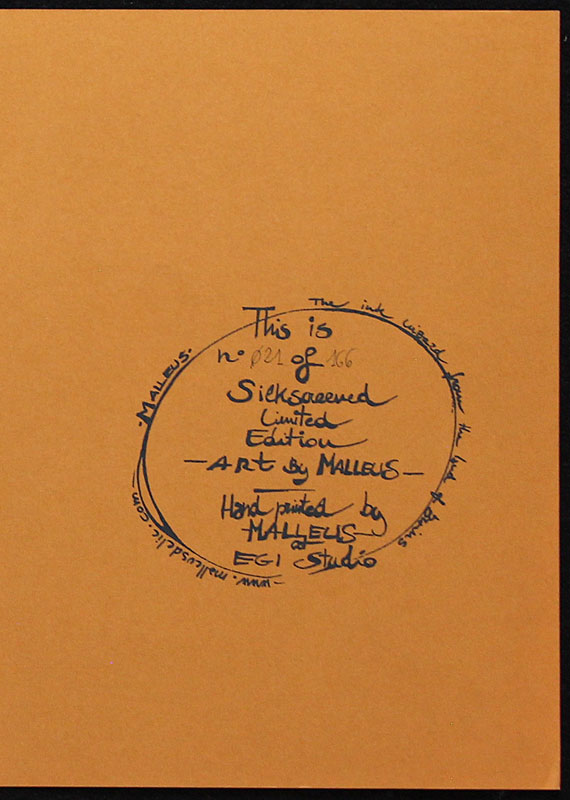 This is
n° 021 of 166
Silkscreened
Limited
Edition
- ART By MALLEUS -
Hand printed by
MALLEUS
at
EGI Studio
The ink from the land of
· MALLEUS ·
- www.malleusdelic.com -